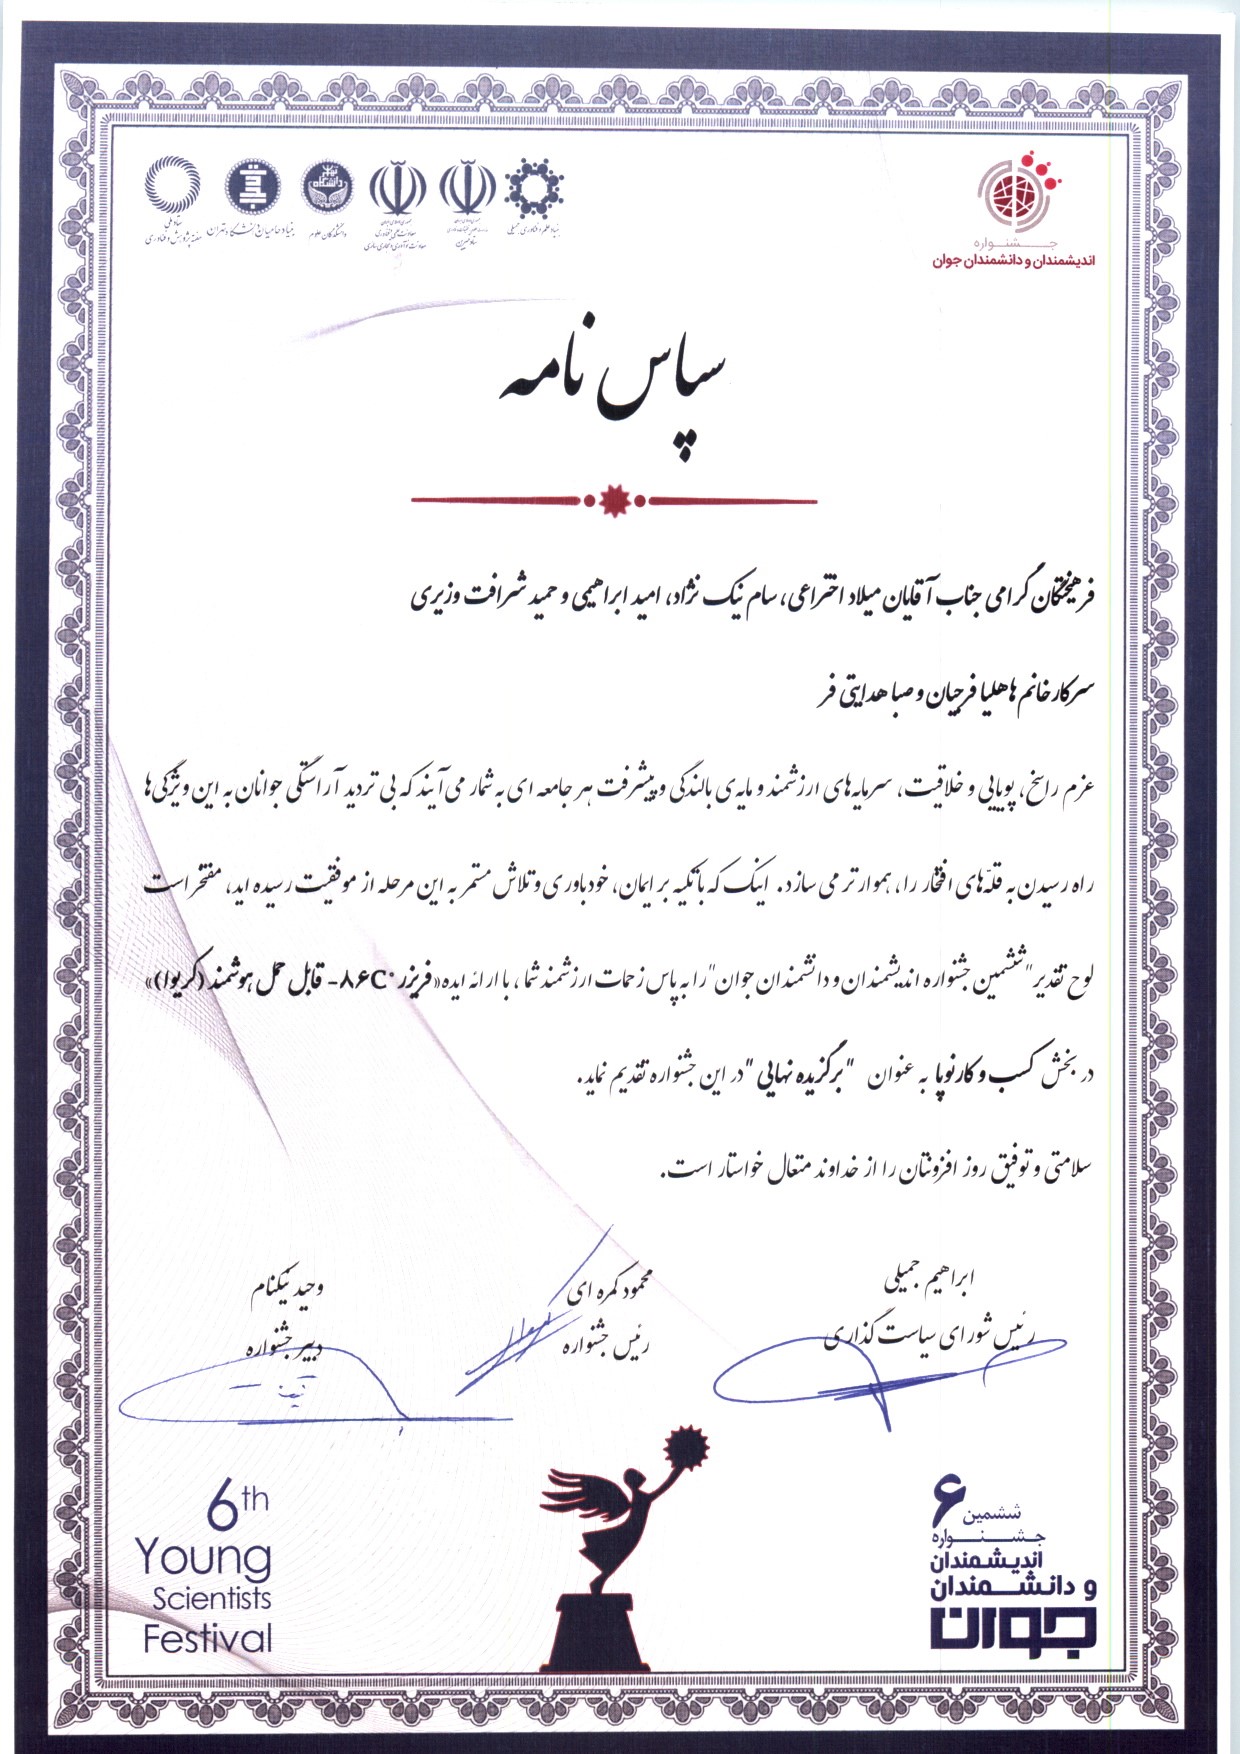 جشنواره
اندیشمندان و دانشمندان جوان
بنیاد علم و فناوری جمیلی
دانشکدگان علوم
بنیاد حامیان دانشگاه تهران
ستاد ملی
هفته پژوهش و فناوری
سپاس نامه
فرهیختگان گرامی جناب آقایان میلاد اختراعی، سام نیک نژاد، امید ابراهیمی و حمید شرافت وزیری
سرکار خانم ها هلیا فرجیان و صبا هدایتی فر
عزم راسخ، پویایی و خلاقیت، سرمایه های ارزشمند و مایه ی بالندگی و پیشرفت هر جامعه ای به شمار می آیند که بی تردید آراستگی جوانان به این ویژگی ها
راه رسیدن به قلّه های افتخار را، هموارتر می سازد. اینک که با تکیه بر ایمان، خودباوری و تلاش مستمر به این مرحله از موفقیت رسیده اید، مفتخر است
لوح تقدیر "ششمین جشنواره اندیشمندان و دانشمندان جوان" را به پاس زحمات ارزشمند شما، با ارائه ایده «فریزر ۸۶C°- قابل حمل هوشمند (کریوا)»
در بخش کسب و کار نوپا به عنوان "برگزیده نهایی" در این جشنواره تقدیم نماید.
سلامتی و توفیق روز افزونتان را از خداوند متعال خواستار است.
ابراهیم جمیلی
رئیس شورای سیاست گذاری
محمود کمره ای
رئیس جشنواره
وحید نیکنام
دبیر جشنواره
۶
ششمین
جشنواره
اندیشمندان
و دانشمندان
جوان
6th
Young
Scientists
Festival